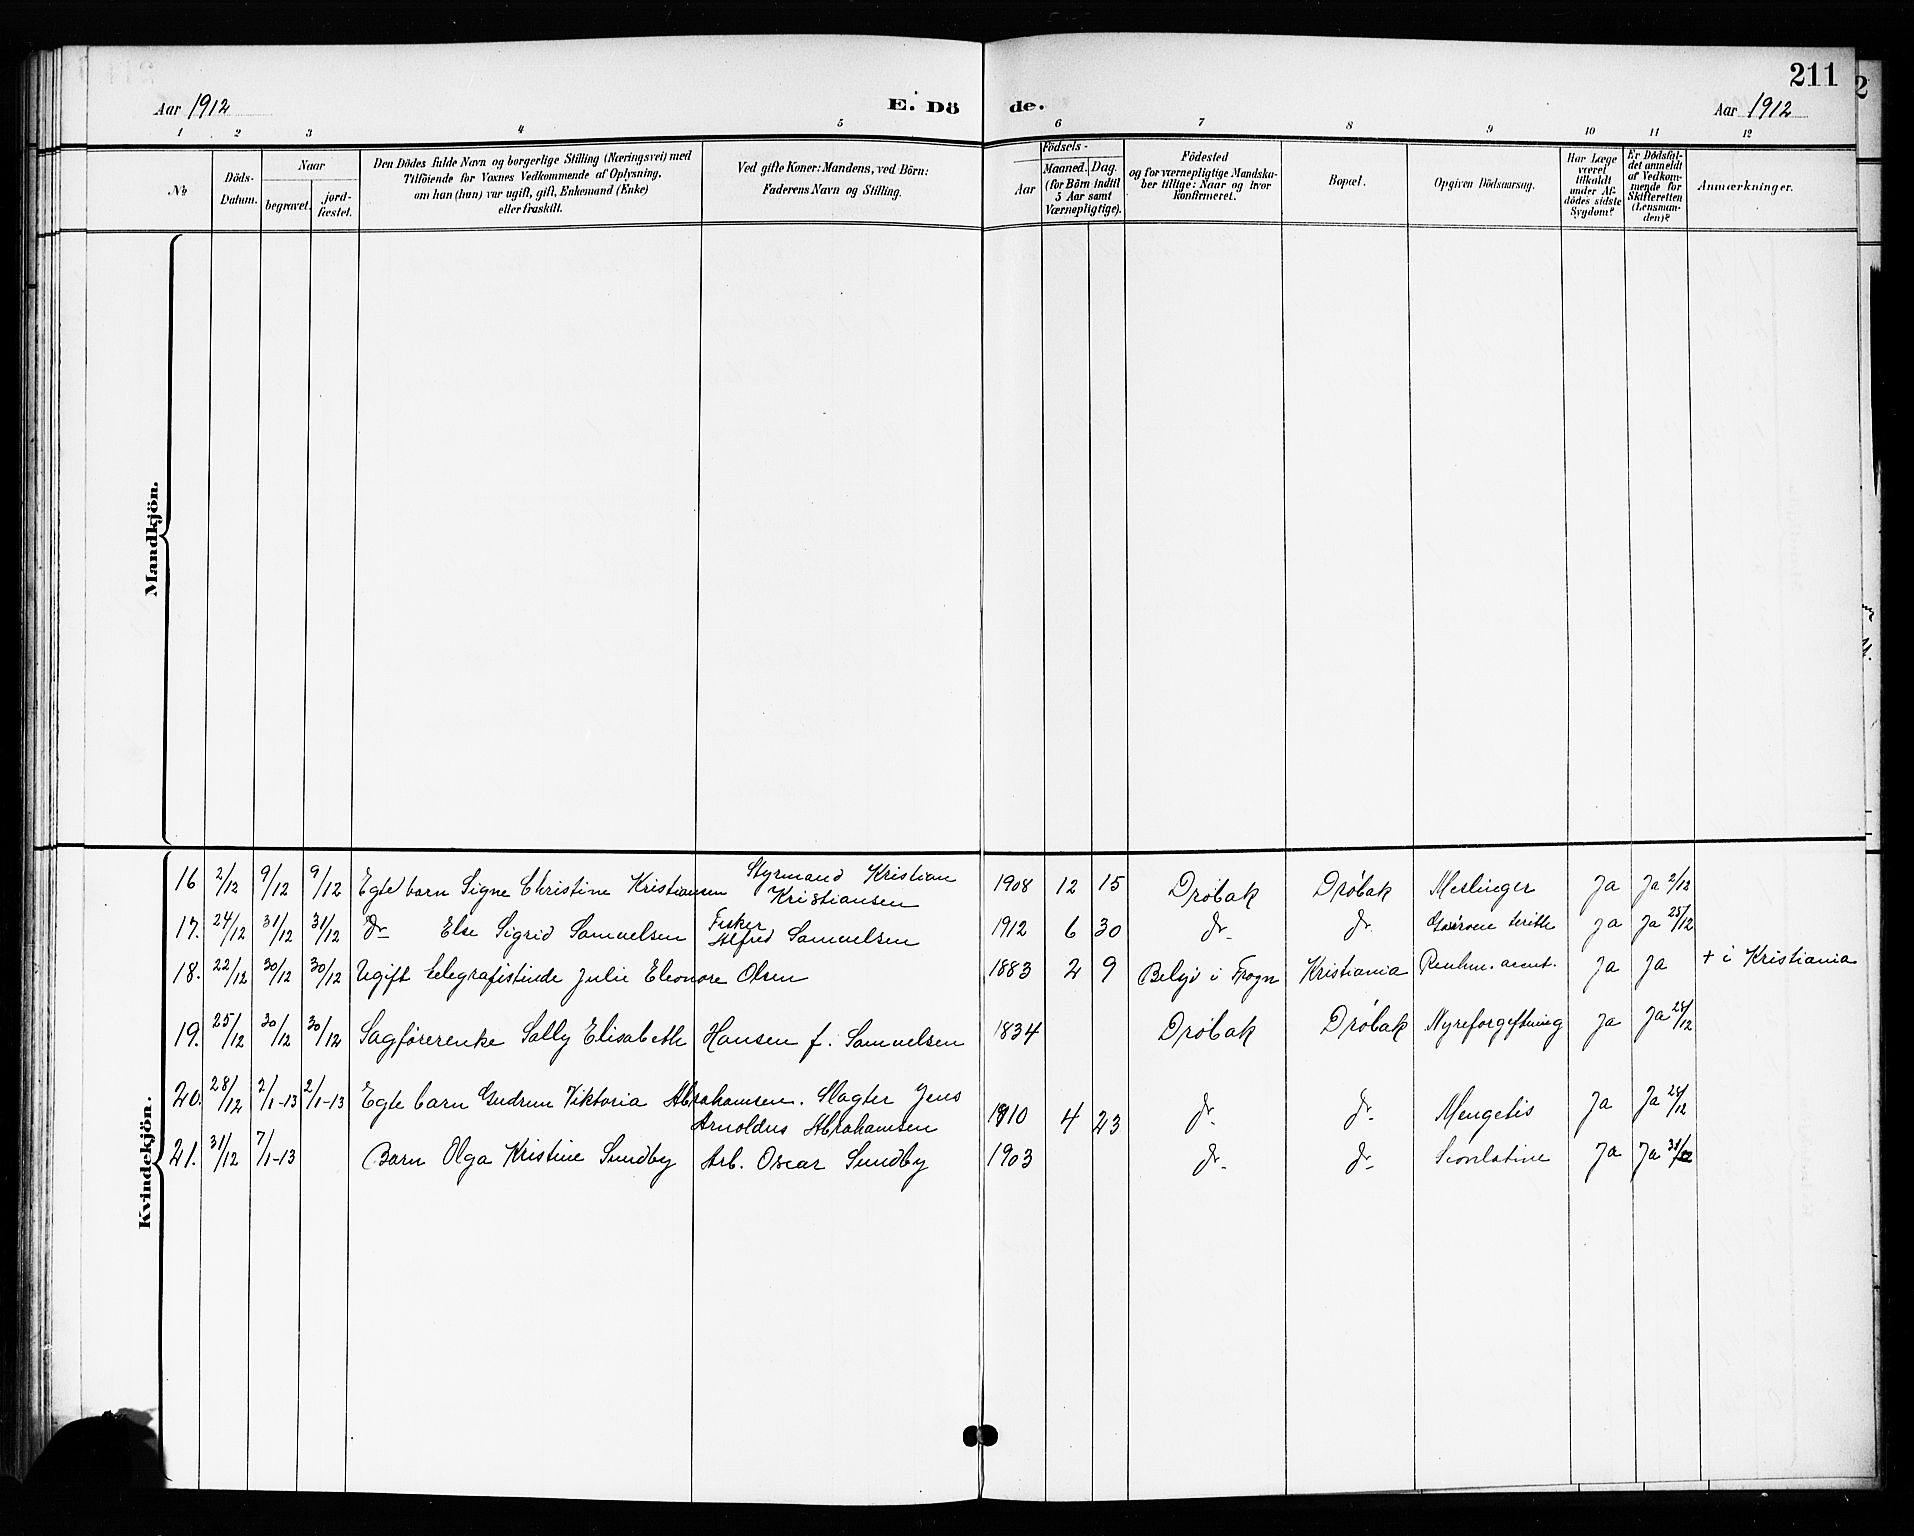 211
Aar 1912 E. Dö de. Aar 1912
1 2 3 4 5 6 7 8 9 10 11 12
No
Döds-Datum.
Naar
begravet.
jord-fæstet.
Den Dödes fulde Navn og borgerlige Stilling (Næringsvei) med
Tilföiende for Voxnes Vedkommende af Oplysning,
om han (hun) var ugift, gift, Enkemand (Enke)
eller fraskilt.
Ved gifte Koner: Mandens, ved Börn:
Faderens Navn og Stilling.
Födsels-
Aar
Maaned. Dag.
(for Börn indtil
5 Aar samt
Værnepligtige).
Födested
og for værnepligtige Mandska-
ber tillige: Naar og hvor
konfirmeret.
Bopæl.
Opgiven Dödsaarsag.
Har Læge
været
tilkaldt
under Af-
dödes sidste
Sygdom?
Er Dödsfal-
det anmeldt
af Vedkom-
mende for
Skifteretten
(Lensman-
den)?
Anmærkninger.
Mandkjön.
Kvindekjön.
16 2/12 9/12 9/12 Egte barn Signe Christine Kristiansen Styrmand Kristian
Kristiansen 1908 12 15 Dröbak Dröbak Ja Ja 2/12
17. 24/12 31/12 31/12 Do Else Sigrid Samuelsen Fisker
Alfred Samuelsen 1912 6 30 Do Do Ja Ja 25/12
18. 22/12 30/12 30/12 Ugift telegrafistinde Julie Eleonore Olsen 1883 2 9 i Frogn Kristiania Ja Ja + i Kristiania
19. 25/12 30/12 30/12 Sagførerenke Sally Elisabeth Hansen f. Samuelsen 1834 Dröbak Dröbak Nyreforgiftning Ja Ja 28/12
20. 28/12 2/1-13 2/1-13 Egte barn Gudrun Viktoria Abrahamsen. Slagter Jens
Arnoldus Abrahamsen 1910 4 23 Do Do Ja Ja 28/12
21. 31/12 7/1-13 Barn Olga Kristine Sundby Arb. Oscar Sundby 1903 Do Do Ja Ja 31/12